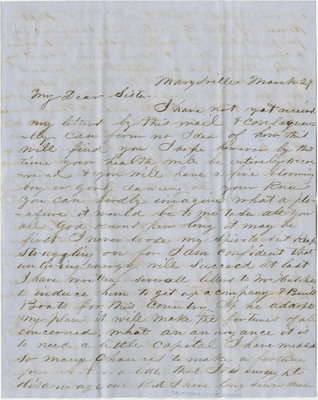 Marysville March 29
My Dear Sister
I have not yet receivd
my letters by this mail & consequen
tly can form no Idea of how this
will find you I hope however by the
time your health will be entirely recov
ered & you will have a fine blooming
boy or girl dancing on your knee
You can hardly imagine what a ple
asure it would be to me to see all you
all God knows how long it may be
first I never loose my spirits but keep
struggling on for I am confident that
untiring energy will succeed at last
I have written several letters to
to induce him to get up a company & build
Boats for this Country If he adopts
my plan it will make the fortunes of all
concerned what an annoyance it is
to need a little capital I have missed
so many chances to make a fortune
for want of a little that It is enough to
discourage one But I have long since